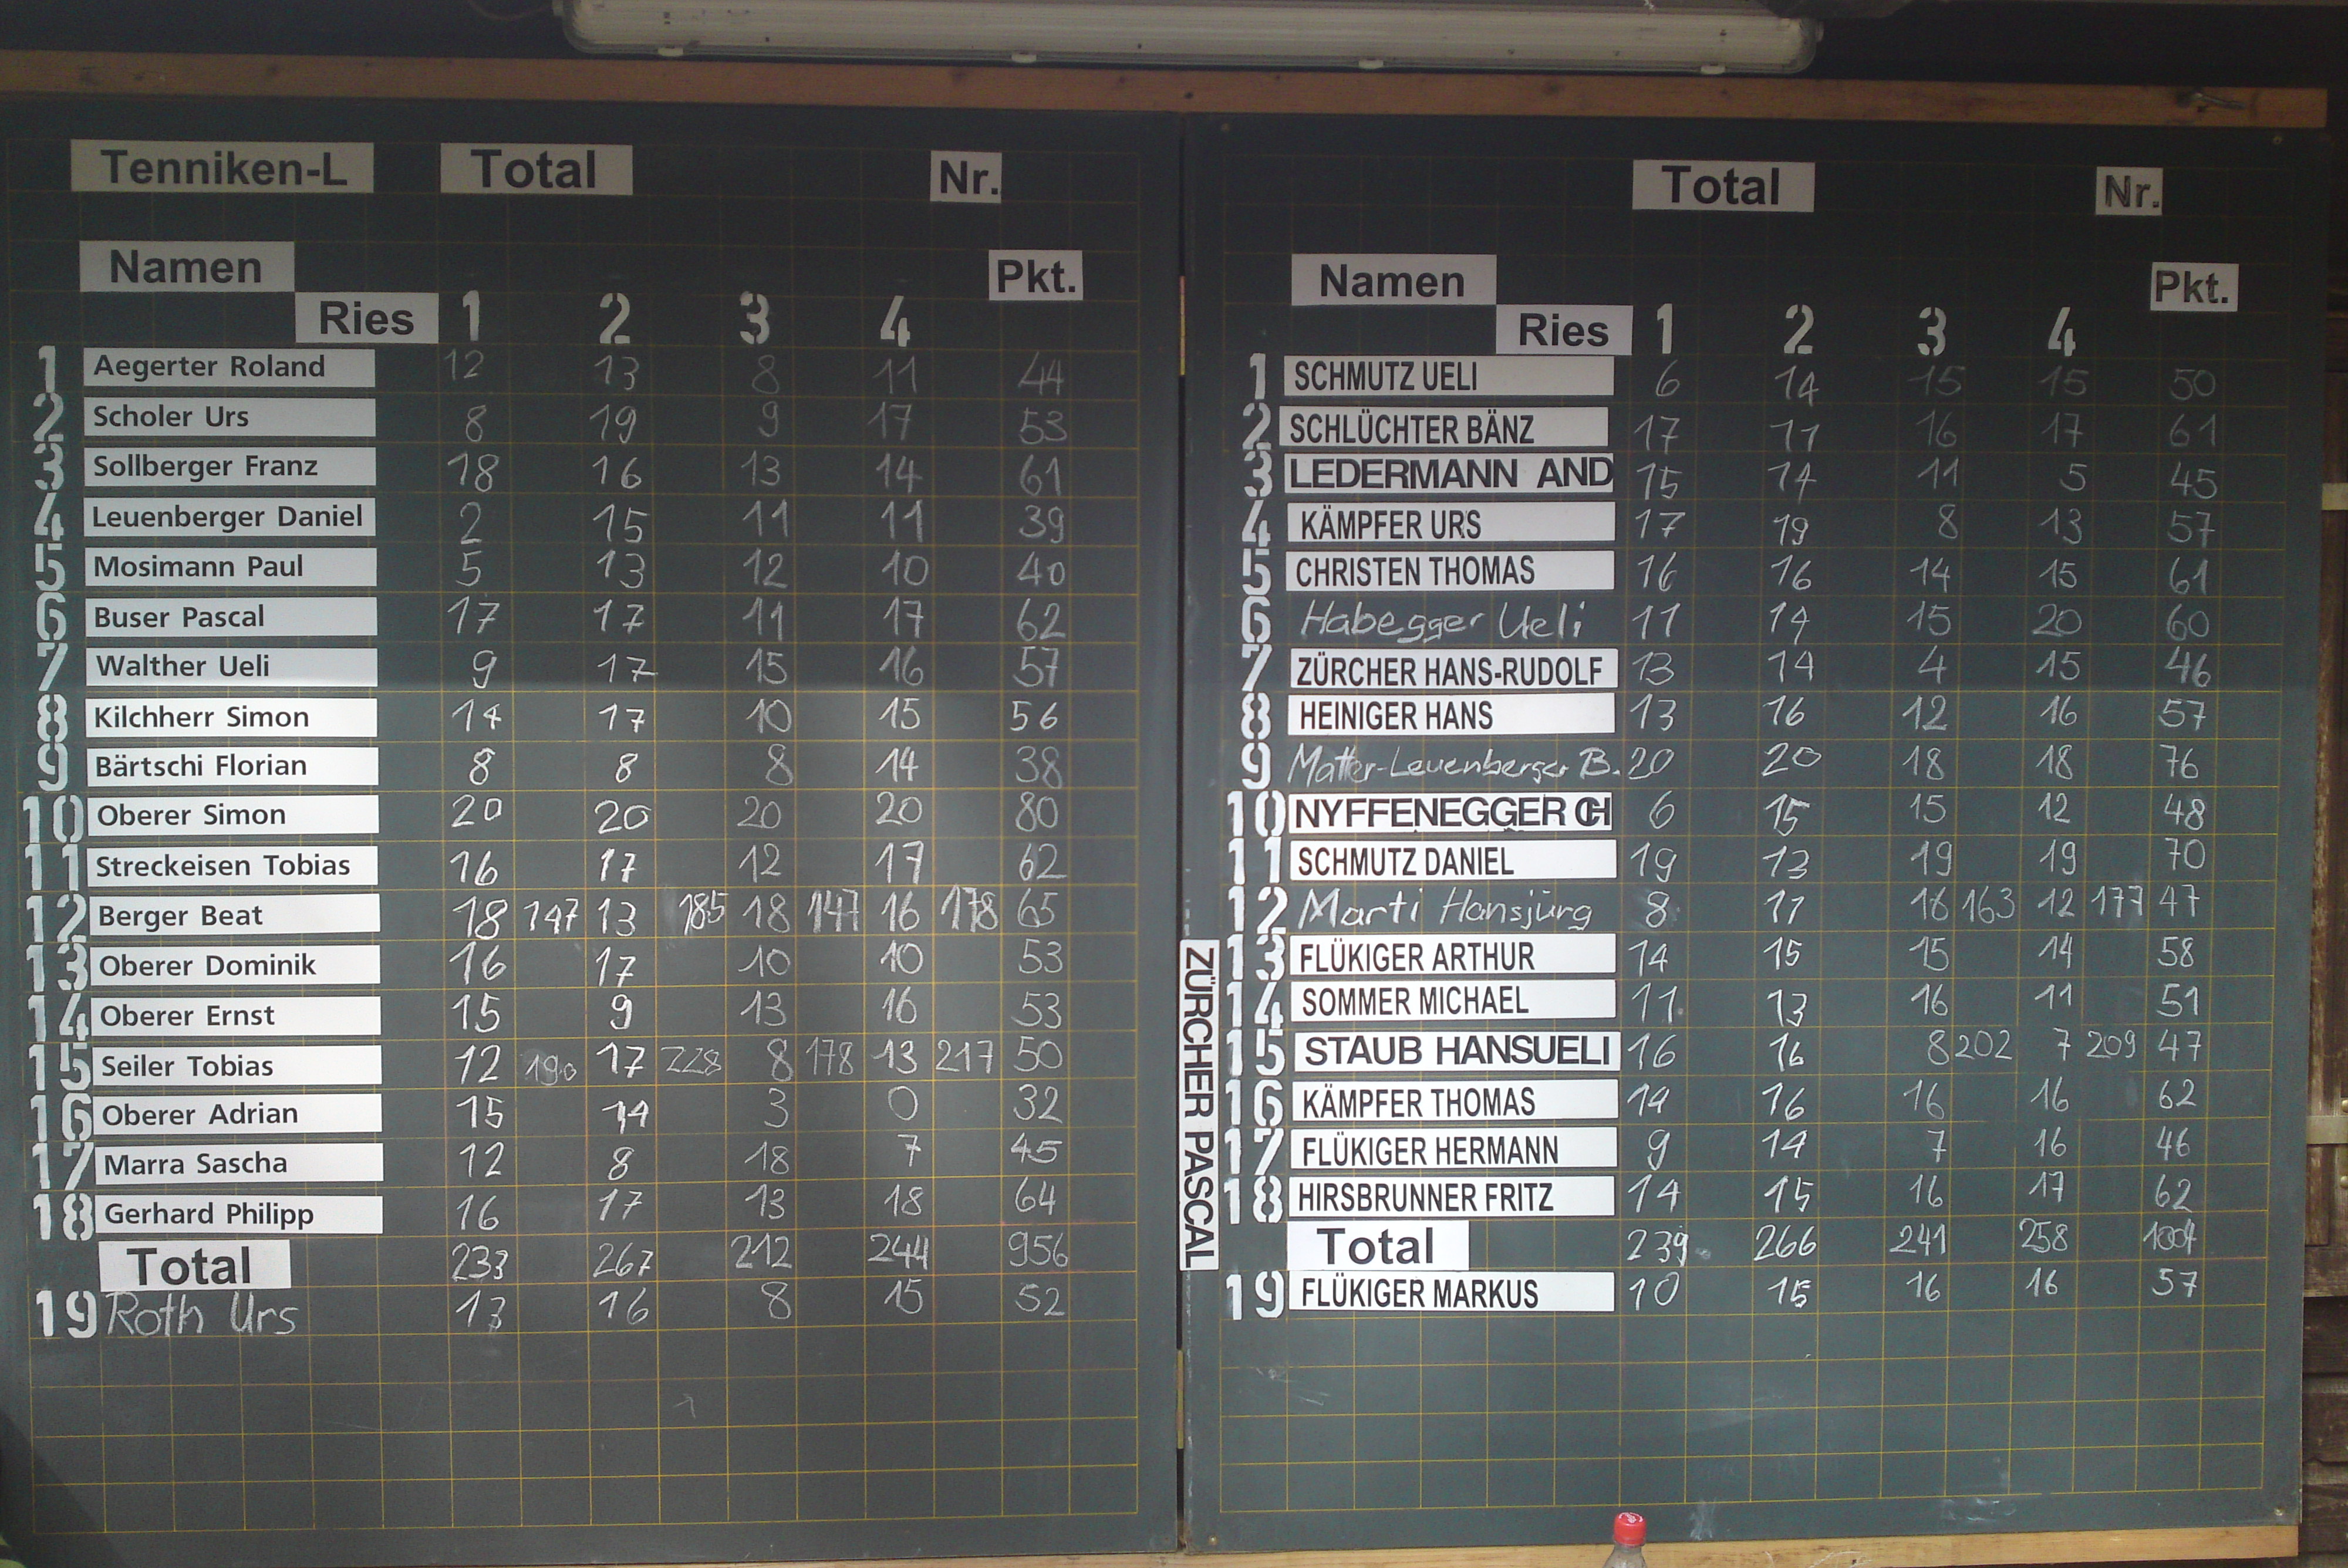 Tenniken-L Total Nr.
Namen Pkt.
Ries 1 2 3 4
1 Aegerter Roland 12 13 8 11 44
2 Scholer Urs 8 19 9 17 53
3 Sollberger Franz 18 16 13 14 61
4 Leuenberger Daniel 2 15 11 11 39
5 Mosimann Paul 5 13 12 10 40
6 Buser Pascal 17 17 11 17 62
7 Walther Ueli 9 17 15 16 57
8 Kilchherr Simon 14 17 10 15 56
9 Bärtschi Florian 8 8 8 14 38
10 Oberer Simon 20 20 20 20 80
11 Streckeisen Tobias 16 17 12 17 62
12 Berger Beat 18 147 13 185 18 147 16 178 65
13 Oberer Dominik 16 17 10 10 53
14 Oberer Ernst 15 9 13 16 53
15 Seiler Tobias 12 190 17 228 8 178 13 217 50
16 Oberer Adrian 15 14 3 0 32
17 Marra Sascha 12 8 18 7 45
18 Gerhard Philipp 16 17 13 18 64
Total 233 267 212 244 956
19 Roth Urs 13 16 8 15 52
ZÜRCHER PASCAL
Total Nr.
Namen Pkt.
Ries 1 2 3 4
1 SCHMUTZ UELI 6 14 15 15 50
2 SCHLÜCHTER BÄNZ 17 11 16 17 61
3 LEDERMANN AND 15 14 11 5 45
4 KÄMPFER URS 17 19 8 13 57
5 CHRISTEN THOMAS 16 16 14 15 61
6 Habegger Ueli 11 14 15 20 60
7 ZÜRCHER HANS-RUDOLF 13 14 4 15 46
8 HEINIGER HANS 13 16 12 16 57
9 Matter-Leuenberger B. 20 20 18 18 76
10 NYFFENEGGER CH 6 15 15 12 48
11 SCHMUTZ DANIEL 19 13 19 19 70
12 Marti Hansjürg 8 11 16 163 12 177 47
13 FLÜKIGER ARTHUR 14 15 15 14 58
14 SOMMER MICHAEL 11 13 16 11 51
15 STAUB HANSUELI 16 16 8 202 7 209 47
16 KÄMPFER THOMAS 14 16 16 16 62
17 FLÜKIGER HERMANN 9 14 7 16 46
18 HIRSBRUNNER FRITZ 14 15 16 17 62
Total 239 266 241 258 1004
19 FLÜKIGER MARKUS 10 15 16 16 57